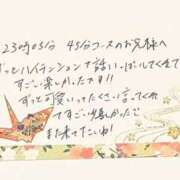 23時05分 45分コースのお兄様へ
ずっとハイテンションで話いっぱいしてくれて
すごい楽しかったです!!
ずっと可愛いってたくさん言ってくれ
てすごい嬉しかったで
また来てたいね!